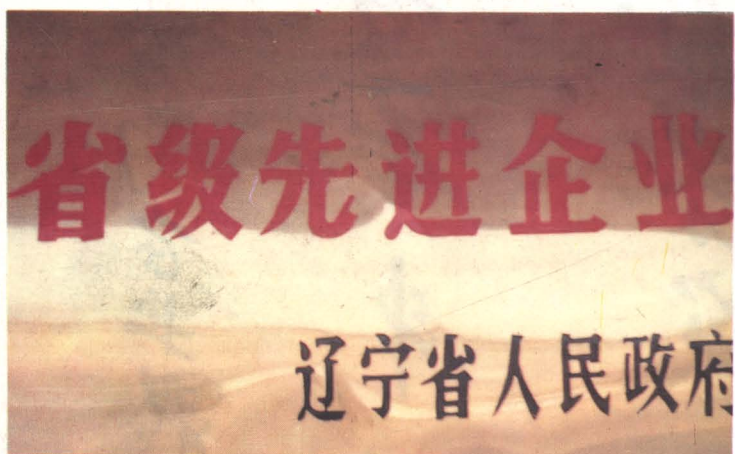 省级先进企业
辽宁省人民政府